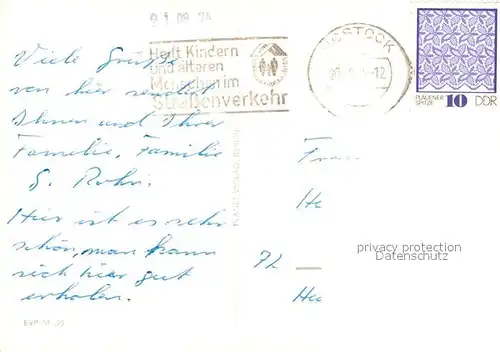 21 09 74
Helft Kindern
und älteren
Menschen im
Straßenverkehr
ROSTOCK
PLAUENER
SPITZE
10 DDR
Viele Grüße
von hier sendet
Ihnen und Ihrer
Familie, Familie
G. Rohn.
Hier ist es sehr
schön, man kann
sich hier gut
erholen.
Frau
He
72
Hu
privacy protection
Datenschutz
EVP-M -,20